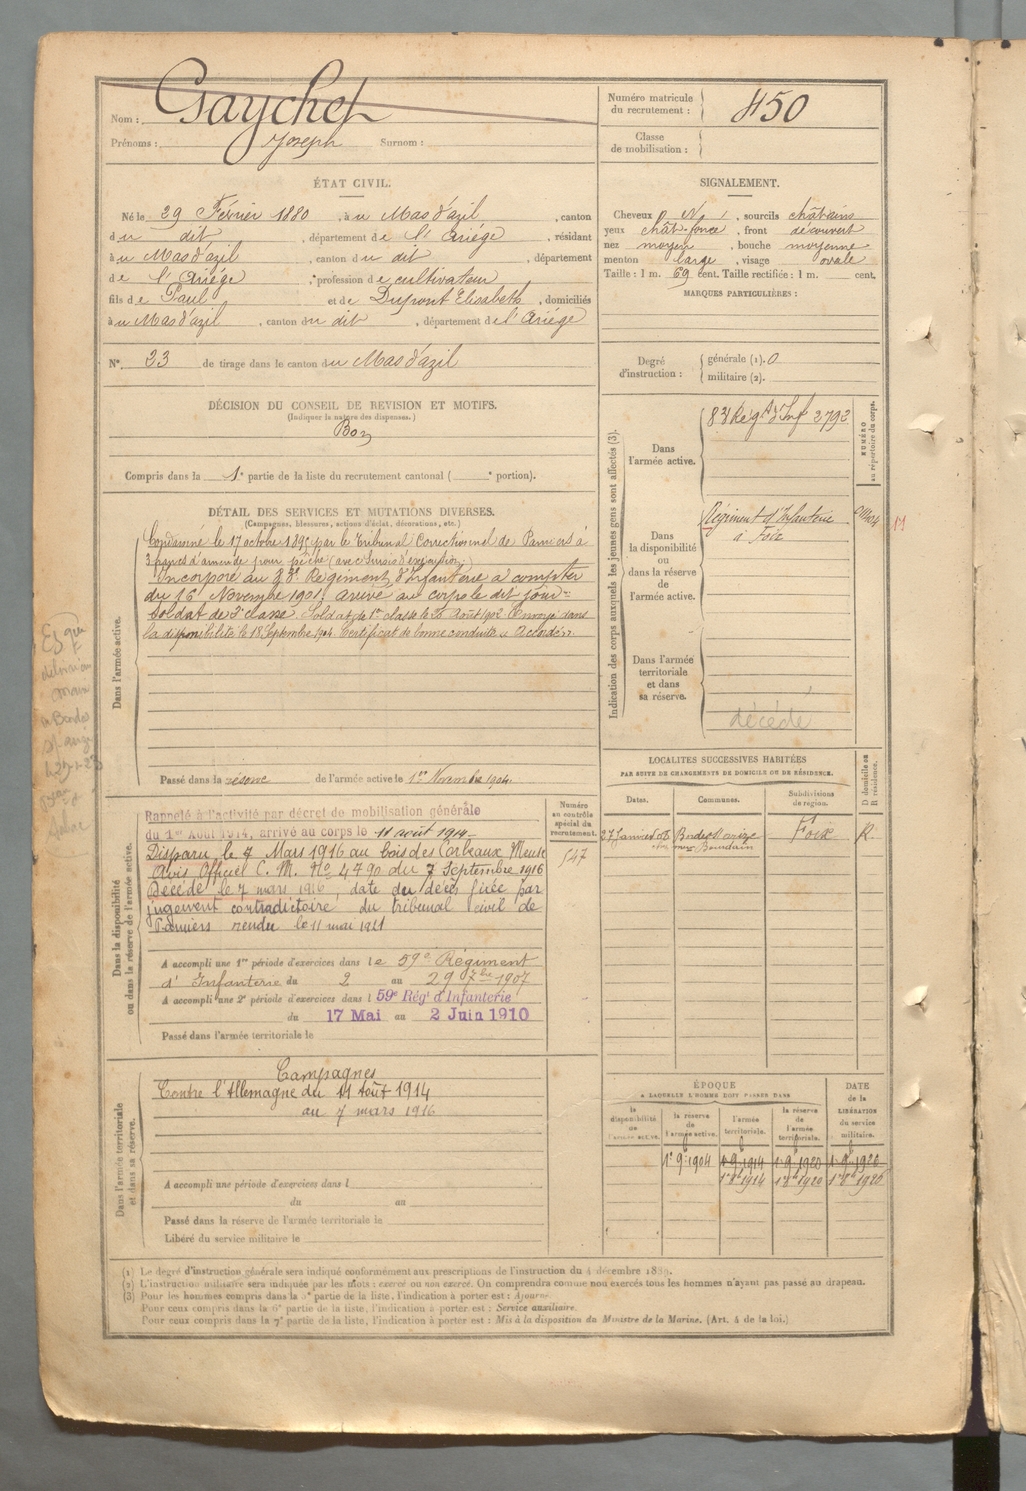 Nom : Gaychet
Prénoms : Joseph Surnom :
Numéro matricule du recrutement : 450
Classe de mobilisation :
ÉTAT CIVIL.
Né le 29 Février 1880, à u Mas d'azil, canton
du dit, département de l'Ariége, résidant
à u Mas d'azil, canton du dit, département
de l'Ariége, profession de cultivateur
fils de Paul et de Dupont Elisabeth, domiciliés
à u Mas d'azil, canton du dit, département de l'Ariége
N° 23 de tirage dans le canton du Mas d'azil
DÉCISION DU CONSEIL DE REVISION ET MOTIFS.
(Indiquer la nature des dispenses.)
Bon
Compris dans la 1e partie de la liste du recrutement cantonal ( e portion).
SIGNALEMENT.
Cheveux N, sourcils châtains
yeux chât-foncé, front découvert
nez moyen, bouche moyenne
menton large, visage ovale
Taille : 1 m. 69 cent. Taille rectifiée : 1 m. cent.
MARQUES PARTICULIÈRES :
Degré d'instruction : générale (1). 0
militaire (2).
DÉTAIL DES SERVICES ET MUTATIONS DIVERSES.
(Campagnes, blessures, actions d'éclat, décorations, etc.)
Dans l'armée active.
Condamné le 17 octobre par le Tribunal Correctionnel de Pamiers à
3 francs d'amende pour pêche (avec Sursis d'exécution)
Incorporé au 83e Régiment d'Infanterie à compter
du 16 Novembre 1901. arrivé au corps le dit jour
Soldat de classe. Soldat de 1re classe le Août 1902 Envoyé dans
la disponibilité le 18 Septembre 1904. Certificat de bonne conduite Accordé.
Passé dans la réserve de l'armée active le 1er Novembre 1904.
Indication des corps auxquels les jeunes gens sont affectés (3).
NUMÉRO au répertoire du corps.
Dans l'armée active.
83 Régt d'Inf 2792
Dans la disponibilité ou dans la réserve de l'armée active.
Régiment d'Infanterie
à Foix
Dans l'armée territoriale et dans sa réserve.
décédé
Dans la disponibilité ou dans la réserve de l'armée active.
Rappelé à l'activité par décret de mobilisation générale
du 1er Août 1914, arrivé au corps le 11 août 1914
Disparu le 7 Mars 1916 au bois des Corbeaux Meuse
Avis Officiel C. M. No 4790 du 7 Septembre 1916
Décédé le 7 mars 1916, date du décès fixée par
jugement contradictoire du tribunal civil de
Pamiers rendu le 11 mai 1921
Numéro au contrôle spécial du recrutement.
547
A accompli une 1re période d'exercices dans le 59e Régiment
d'Infanterie du 2 au 29 7bre 1907
A accompli une 2e période d'exercices dans l 59e Régt d'Infanterie
du 17 Mai au 2 Juin 1910
Passé dans l'armée territoriale le
LOCALITÉS SUCCESSIVES HABITÉES
PAR SUITE DE CHANGEMENTS DE DOMICILE OU DE RÉSIDENCE.
Dates. Communes. Subdivisions de région. D domicile ou R résidence.
27 Janvier Foix R
Dans l'armée territoriale et dans sa réserve.
Campagnes
Contre l'Allemagne du 11 Août 1914
au 7 mars 1916
A accompli une période d'exercices dans l
du au
Passé dans la réserve de l'armée territoriale le
Libéré du service militaire le
ÉPOQUE
A LAQUELLE L'HOMME DOIT PASSER DANS
la disponibilité de l'armée active.
la réserve de l'armée active.
l'armée territoriale.
la réserve de l'armée territoriale.
DATE de la LIBÉRATION du service militaire.
1er 9b 1904 1er 9b 1914 1er 9b 1920 1er 9b 1926
(1) Le degré d'instruction générale sera indiqué conformément aux prescriptions de l'instruction du 4 décembre 1889.
(2) L'instruction militaire sera indiquée par les mots : exercé ou non exercé. On comprendra comme non exercés tous les hommes n'ayant pas passé au drapeau.
(3) Pour les hommes compris dans la 5e partie de la liste, l'indication à porter est : Ajourné.
Pour ceux compris dans la 6e partie de la liste, l'indication à porter est : Service auxiliaire.
Pour ceux compris dans la 7e partie de la liste, l'indication à porter est : Mis à la disposition du Ministre de la Marine. (Art. 4 de la loi.)